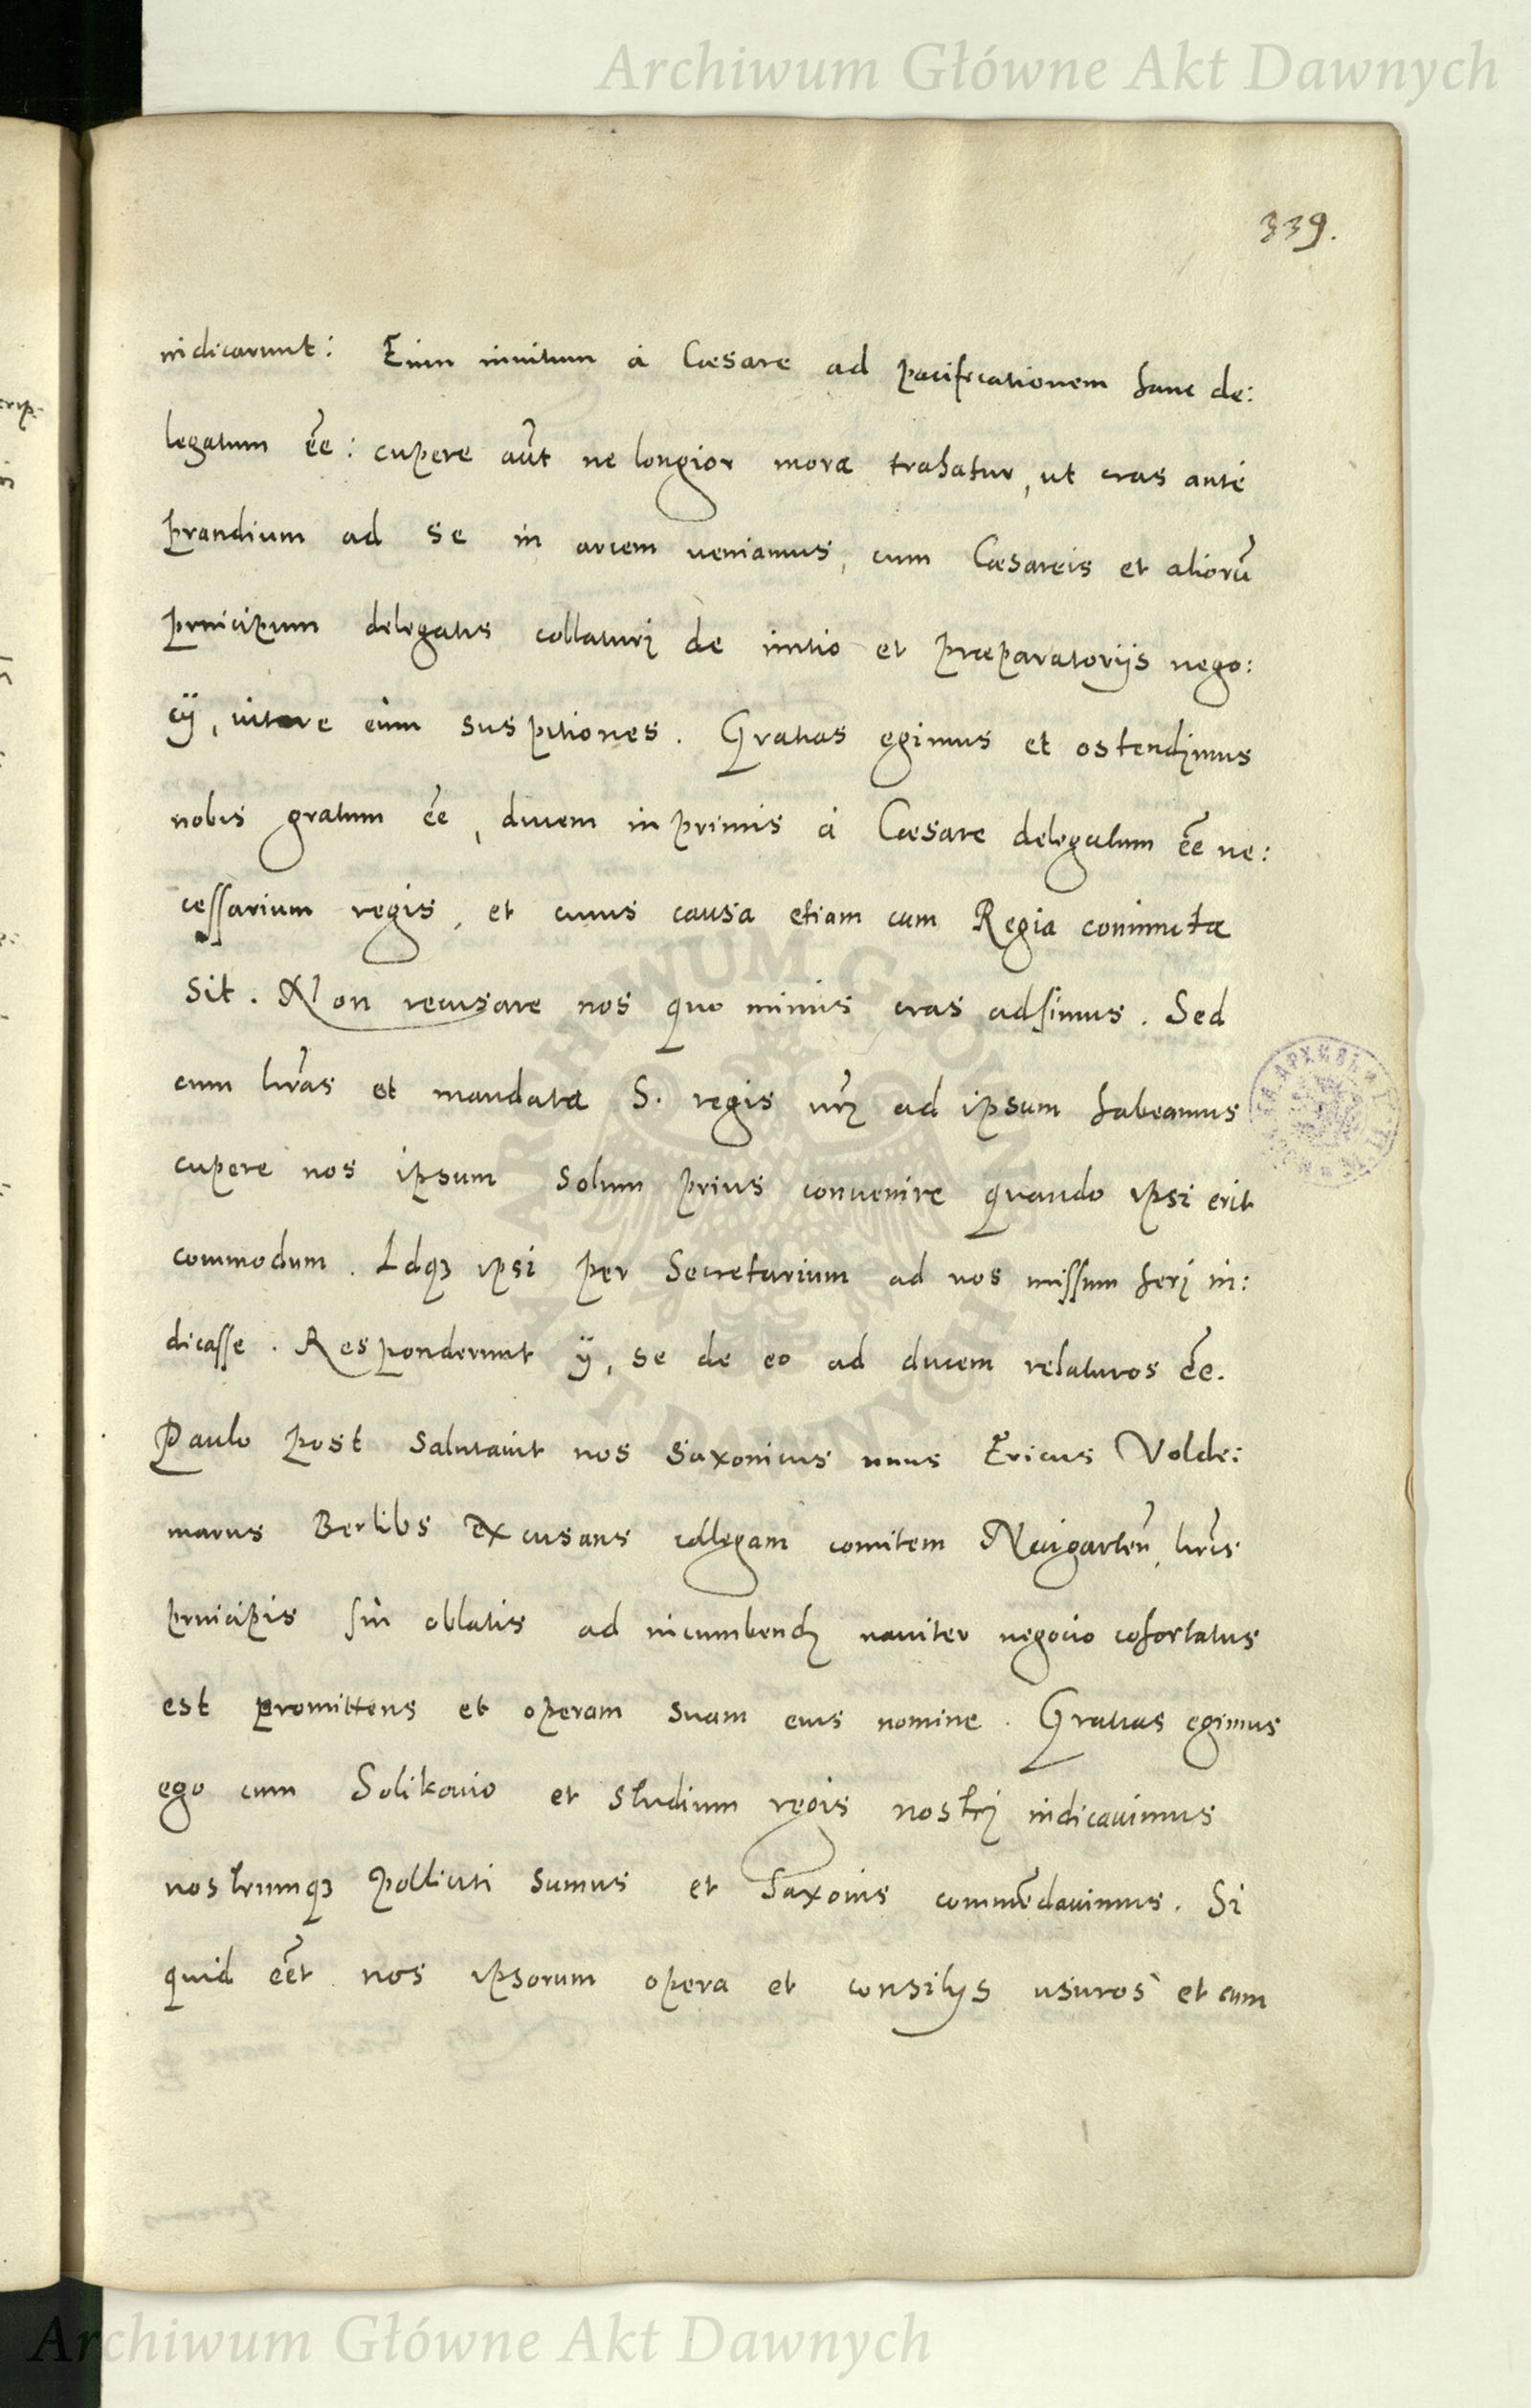 Archiwum Główne Akt Dawnych
339.
indicarunt: Eum inuitum à Cæsare ad pacificationem hanc de:
legatum ēe: cupere aūt ne longior mora trahatur, ut cras ante
prandium ad se in arcem ueniamus, cum Cæsareis et aliorū
principum delegatis collaturj de initio et præparatorijs nego:
cij, uitare eūm suspitiones. Gratias egimus et ostendimus
nobis gratum ēe, ducem in primis à Cæsare delegatum ēe ne:
cessarium regis, et cuius causa etiam cum Regia coniuncta
sit. Non recusare nos quo minus cras adsimus. Sed
cum lr̄as et mandata S. regis nr̄j ad ipsum habeamus
cupere nos ipsum solum prius conuenire quando ipsi erit
commodum. Idqꝫ ipsi per Secretarium ad nos missum herj in:
dicasse. Responderunt ij, se de eo ad ducem relaturos ēe.
Paulo post salutauit nos Saxonicus unus Ericus Volde:
marus Berlibs excusans collegam comitem Neugartēn, lr̄is
principis sūi oblatis ad incumbendū nauiter negocio cohortatus
est promittens et operam suam eius nomine. Gratias egimus
ego cum Solikouio et studium regis nostrj indicauimus
nostrumqꝫ polliciti sumus et Saxonis commēdauimus. Si
quid eēt nos ipsorum opera et consilijs usuros et cum
ARCHIWUM GŁÓWNE AKT DAWNYCH
Archiwum Główne Akt Dawnych